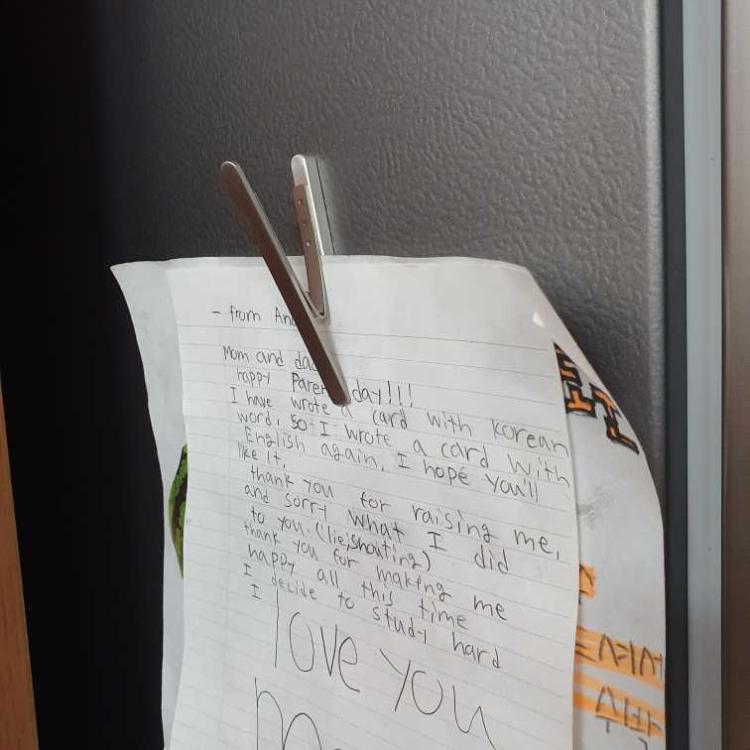 - from An
Mom and dad
happy Paren day!!!
I have wrote a card with korean
word, so I wrote a card with
English again, I hope you'll
like it,
thank you for raising me,
and sorry what I did
to you. (lie, shouting)
thank you for making me
happy all this time
I decide to study hard
I love you